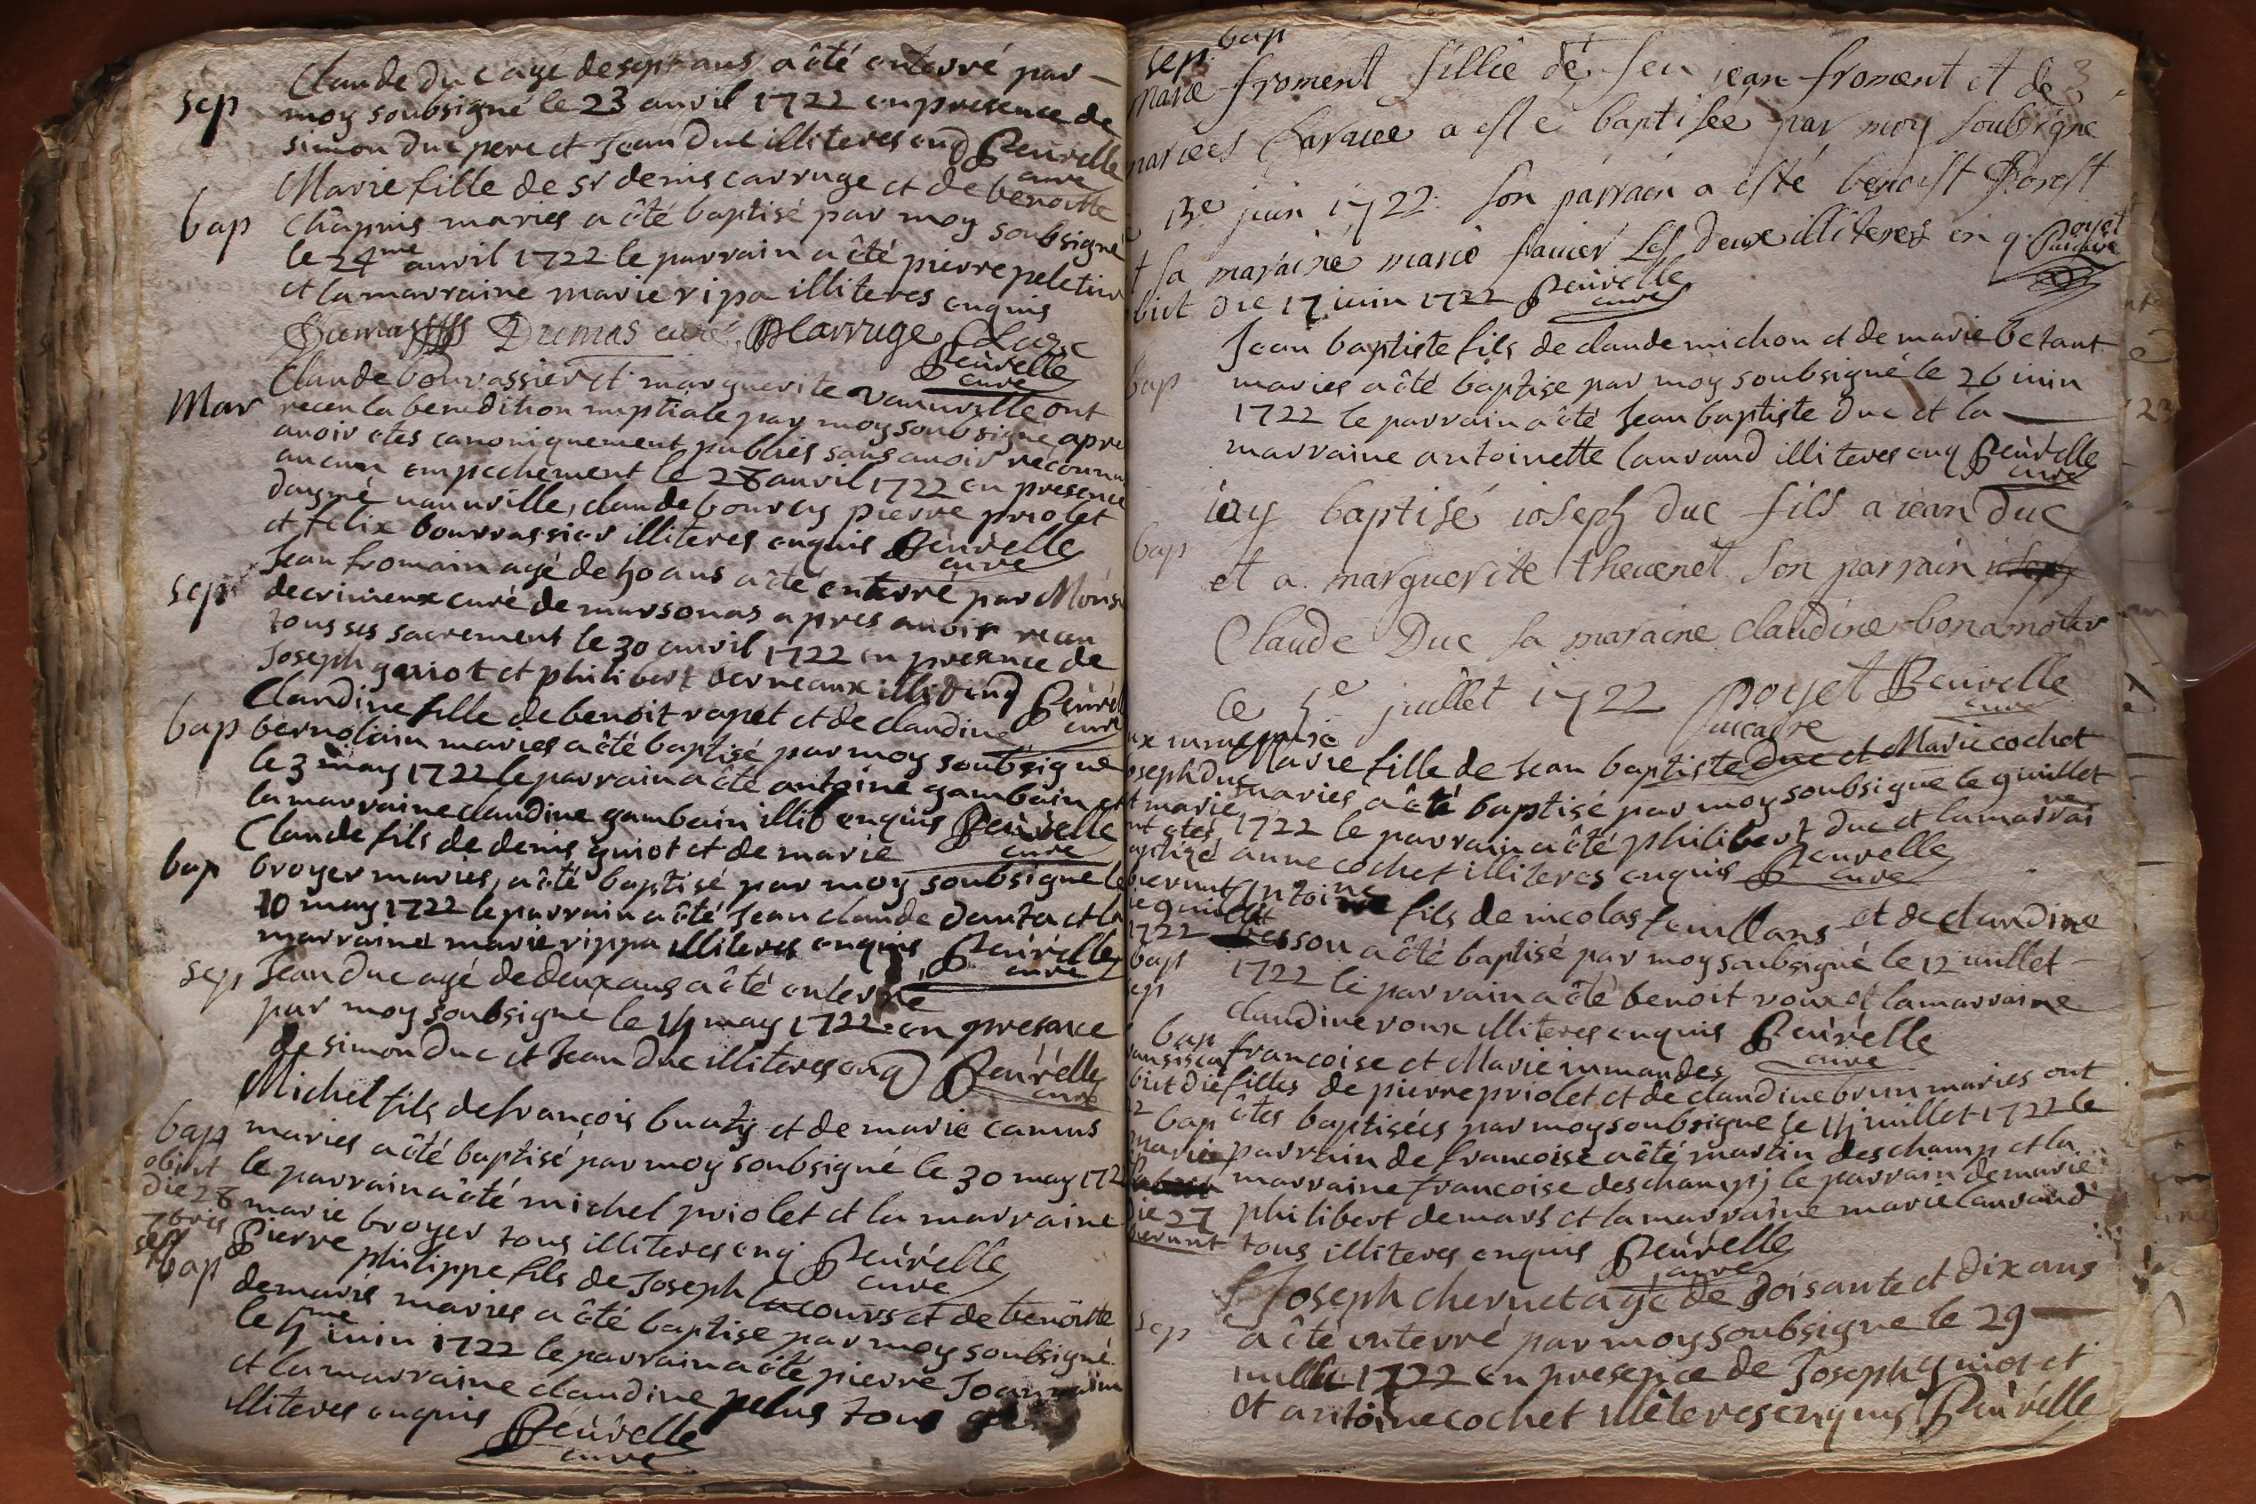 sep
Claude Duc agé de sept ans a été enterré par
moy soubsigné le 23 auril 1722 en presence de
simon Duc pere et Jean Duc illiteres enq Beurelle
curé
bap
Marie fille de sr denis carruge et de benoitte
Chapuis mariés a été baptisé par moy soubsigné
le 24me auril 1722 le parrain a été pierre peletier
et la marraine marie ripa illiteres enquis
Dumas Dumas curé Dlarruge
Beurelle
curé
Mar
Claude bourrassier et marguerite vanuville ont
receu la benediction nuptiale par moy soubsigné apre
auoir etes canoniquement publiés sans auoir reconnu
aucun empechement le 28 auril 1722 en presence
daymé uanuville, claude bourcy pierre priolet
et felix bourrassier illiteres enquis Beurelle
curé
sep
Jean fromain agé de 50 ans a été enterré par Mons
decrimeux curé de marsonas apres auoir receu
tous ses sacrement le 30 auril 1722 en presence de
Joseph guiot et philibert derneaux illit enq Beurel
curé
bap
Claudine fille de benoit rapet et de claudine
bernolain mariés a été baptisé par moy soubsigné
le 3 may 1722 le parrain a été antoine gambain et
la marraine claudine gambain illit enquis Beurelle
curé
bap
Claude fils de denis guiot et de marie
broyer mariés, a été baptisé par moy soubsigné le
10 may 1722 le parrain a été Jean claude danta et la
marraine marie rippa illiteres enquis Beurelle
curé
sep
Jean Duc agé de deux ans a été enterré
par moy soubsigné le 14 may 1722 en presence
de simon Duc et Jean Duc illiteres enq Beurelle
curé
bap
obiit
die 28
7bris
sep
Michel fils de françois buaty et de marie camus
mariés a été baptisé par moy soubsigné le 30 may 172
le parrain a été michel priolet et la marraine
marie broyer tous illiteres enq Beurelle
curé
bap
Pierre philippe fils de Joseph lacours et de benoitte
demaris mariés a été baptisé par moy soubsigné
le 5me iuin 1722 le parrain a été pierre Joannain
et la marraine claudine pelus tous
illiteres enquis Beurelle
curé
bap
sep
Marie froment fillie de feu iean froment et de
mariees a esté baptisée par moy soubsigne
13e juin 1722 son parrain a esté benoist Forest
t sa maraine marie fauier Les deux illiteres en q. Poyet
uicaire
biit die 17 iuin 1722 Beurelle
curé
bap
Jean baptiste fils de claude michon et de marie betant
mariés a été baptisé par moy soubsigné le 26 iuin
1722 le parrain a été Jean baptiste Duc et la
marraine antoinette Lauraud illiteres enq Beurelle
curé
bap
iay baptisé ioseph duc fils a iean duc
et a marguerite theuenet son parrain
Claude Duc sa maraine claudine bonamour
Ce 5e juillet 1722 Poyet Beurelle
uicaire curé
Marie fille de Jean baptiste Duc et Marie cochet
mariés, a été baptisé par moy soubsigné le 9 iuillet
1722 le parrain a été philibert duc et la marrai
ne
anne cochet illiteres enquis Beurelle
curé
oseph duc
t marie
nt etes
aptizé
ierunt
ie 9 iuillet
1722
Antoine fils de nicolas feuillans et de claudine
besson a été baptisé par moy soubsigné le 12 iuillet
1722 le parrain a été benoit roux et la marraine
claudine roux illiteres enquis Beurelle
curé
bap
ep
bap
fransisca
biit die
francoise et Marie iumandes
filles de pierre priolet et de claudine brun mariés ont
êtes baptisées par moy soubsigné le 14 iuillet 1722 le
parrain de francoise a été martin deschamp et la
marraine francoise deschamps le parrain de marie
philibert demars et la marraine marie lauraud
tous illiteres enquis Beurelle
curé
bap
maria
die 27
ierunt
sep
Joseph chernet agé de soisante et dix ans
a été enterré par moy soubsigné le 29
iuillet 1722 en presence de Joseph guiot et
et antoine cochet illiteres enquis Beurelle